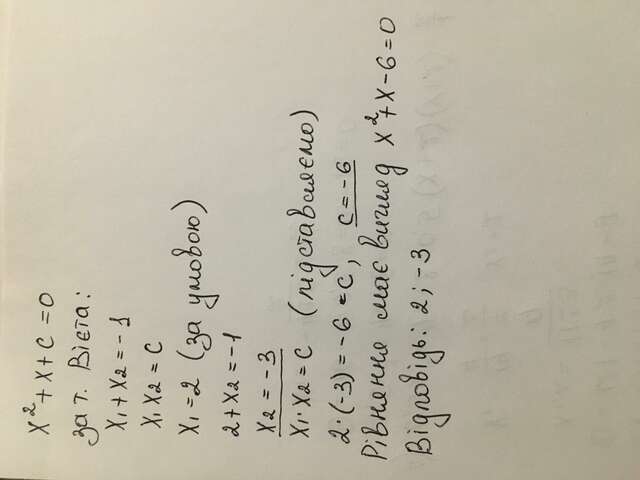 x² + x + c = 0
За т. Вієта:
x₁ + x₂ = -1
x₁ x₂ = c
x₁ = 2 (за умовою)
2 + x₂ = -1
x₂ = -3
x₁ · x₂ = c (підставляємо)
2 · (-3) = -6 = c, c = -6
Рівняння має вигляд x² + x - 6 = 0
Відповідь: 2; -3